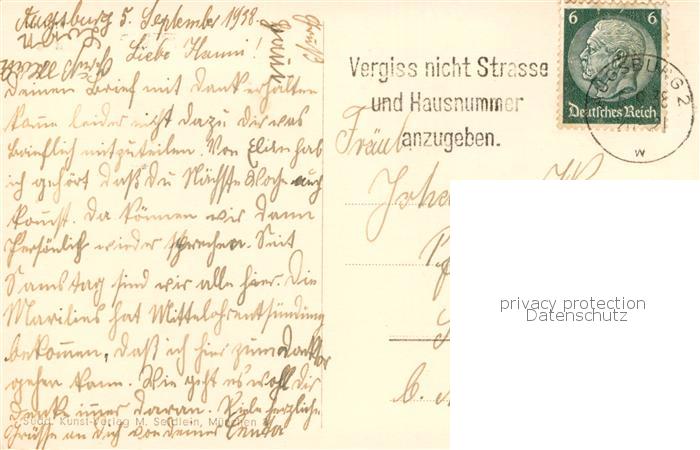 Augsburg 5. September 1938
Liebe Hanni!
Deinen Brief mit Dank erhalten
kann leider nicht dazu Dir was
brieflich mitzuteilen. Von hab
ich gehört daß Du Nächste Woche auch
kommst. Da können wir dann
Persönlich wieder sprechen. Seit
Samstag sind wir alle hier. Die
Marilies hat Mittelohrentzündung
bekommen, daß ich hier zum Doktor
gehen kann. Wie geht es wohl Dir
denke immer daran. Viele herzliche
Grüsse an Dich von deiner
Südd. Kunst-Verlag M. Seidlein, München
Vergiss nicht Strasse
und Hausnummer
anzugeben.
6 6
Deutsches Reich
AUGSBURG 2
w
Fräul
Joha
privacy protection
Datenschutz